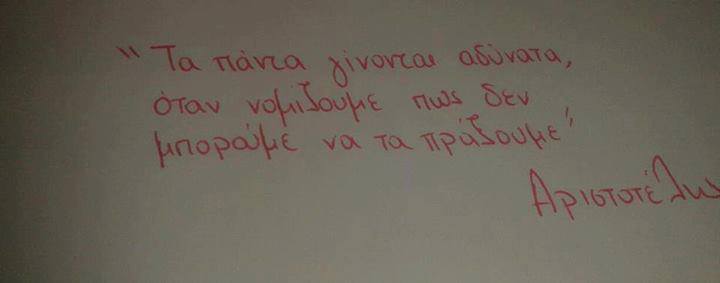 “Τα πάντα γίνονται αδύνατα,
όταν νομίζουμε πως δεν
μποράμε να τα πράξουμε”
Αριστοτέλης